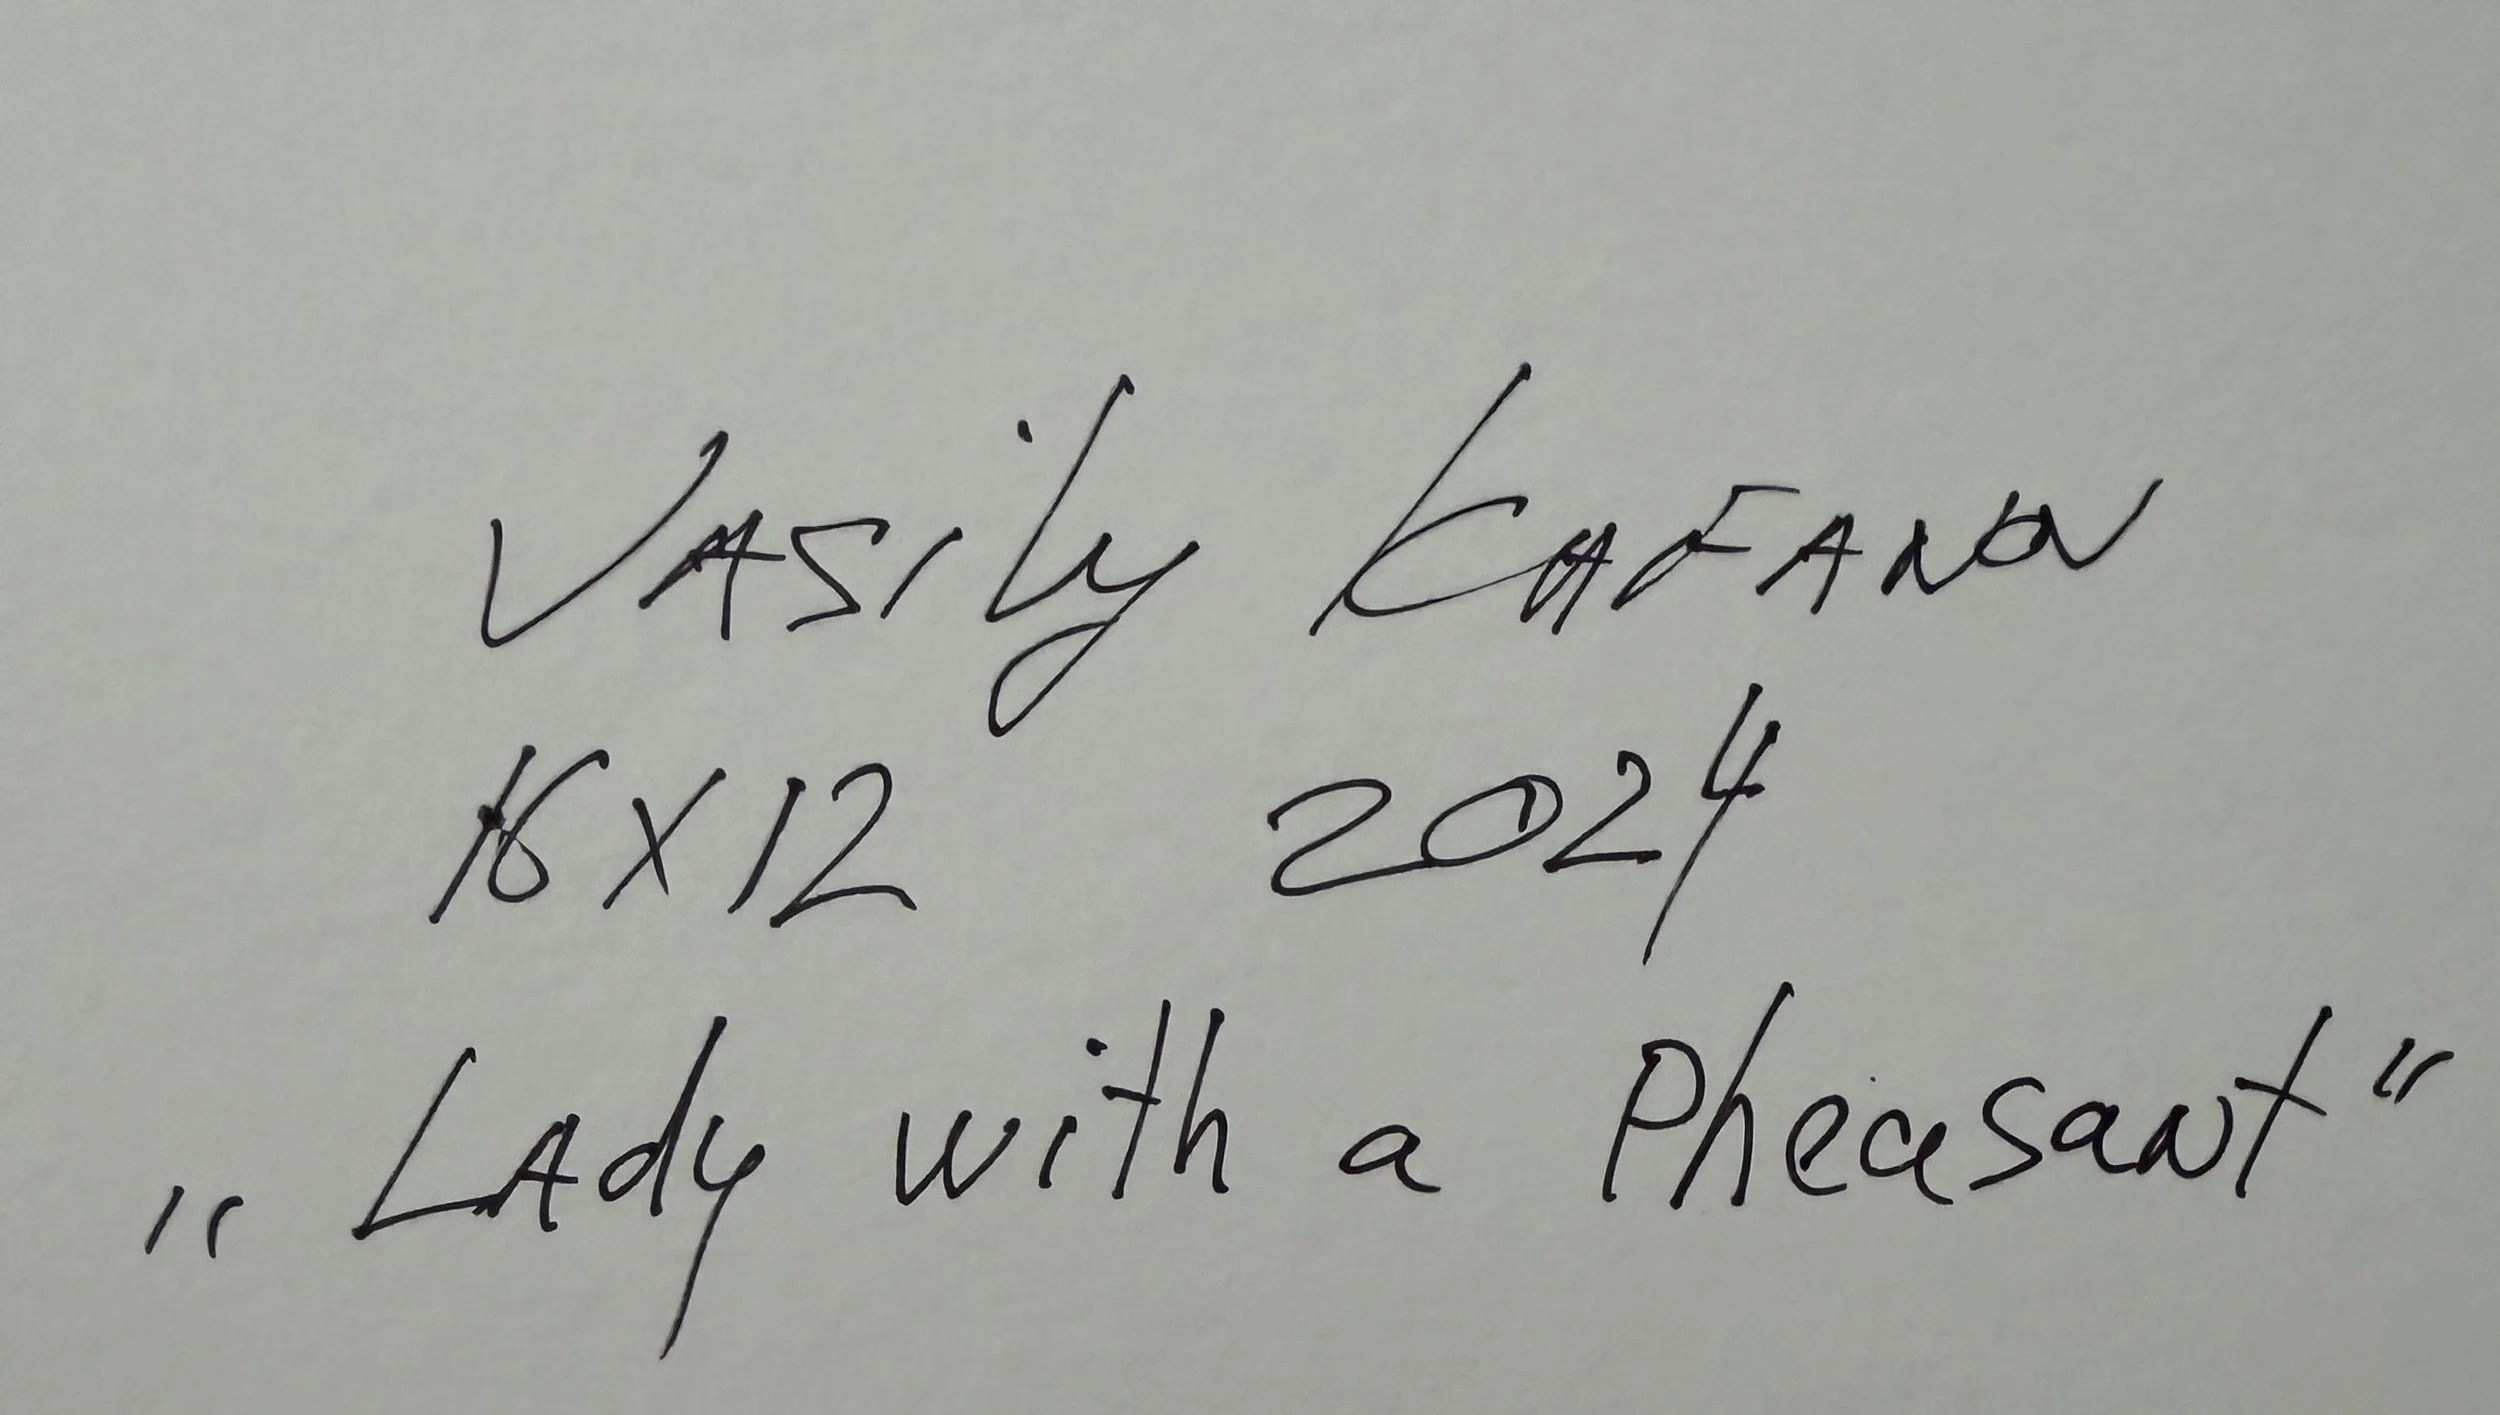 VASily KAFANOV
16 X 12 2024
„Lady with a Pheasant“